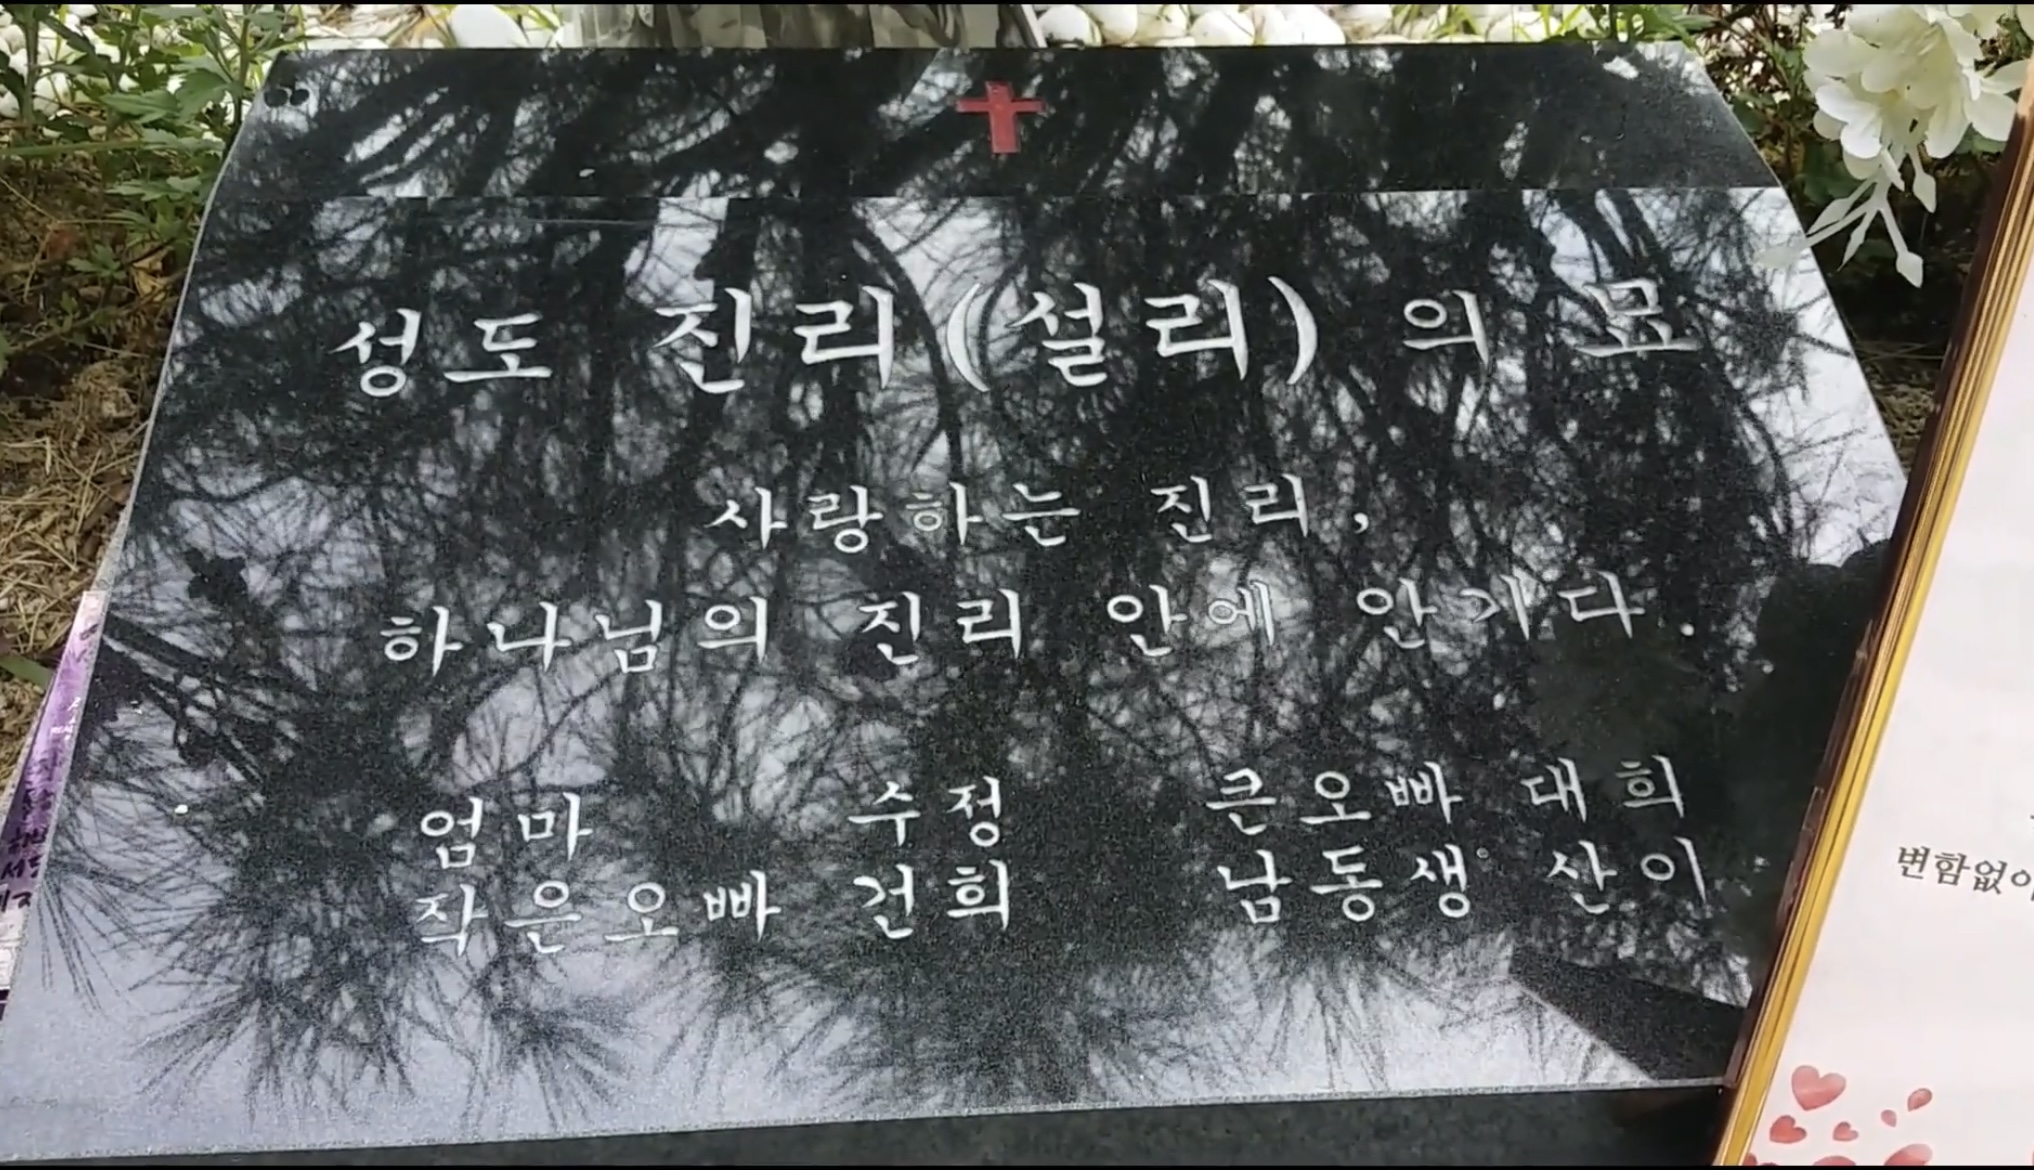 성도 진리(설리)의 묘
사랑하는 진리,
하나님의 진리 안에 안기다.
엄마 수정 큰오빠 대희
작은오빠 건희 남동생 산이
변함없이